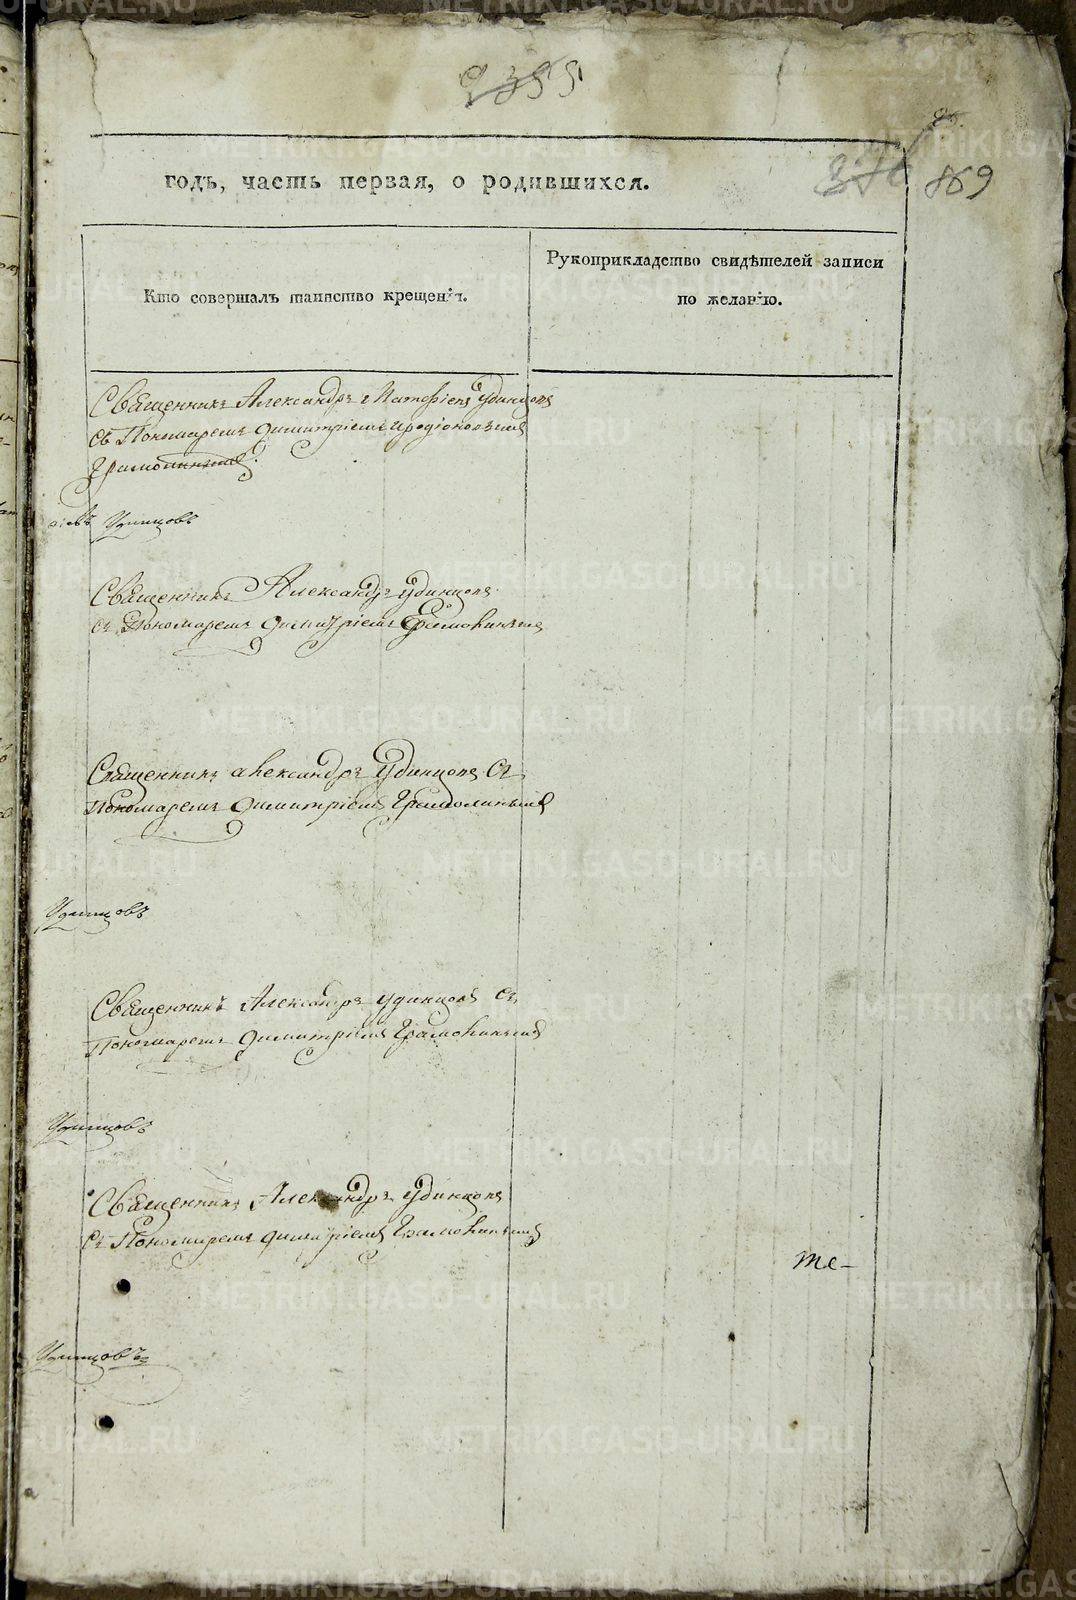 2355
86.
376 869
годъ, часть первая, о родившихся.
Кто совершалъ таинство крещенія.
Рукоприкладство свидѣтелей записи
по желанію.
Священникъ Александръ Матфіевъ Удинцовъ
съ Пономаремъ Димитріемъ Иродіоновымъ
Удинцовъ
Священникъ Александръ Удинцовъ
съ Пономаремъ Димитріемъ
Священникъ Александръ Удинцовъ съ
Пономаремъ Димитріемъ
Удинцовъ
Священникъ Александръ Удинцовъ съ
Пономаремъ Димитріемъ
Удинцовъ
Священникъ Александръ Удинцовъ
съ Пономаремъ Димитріемъ
те-
Удинцовъ
METRIKI.GASO-URAL.RU